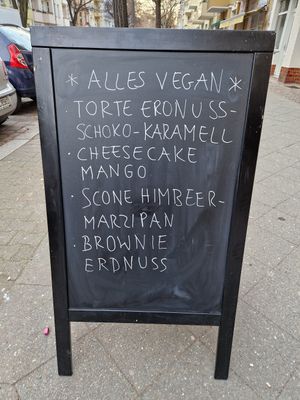 * ALLES VEGAN *
· TORTE ERDNUSS-
SCHOKO-KARAMELL
· CHEESECAKE
MANGO
· SCONE HIMBEER-
MARZIPAN
· BROWNIE
ERDNUSS